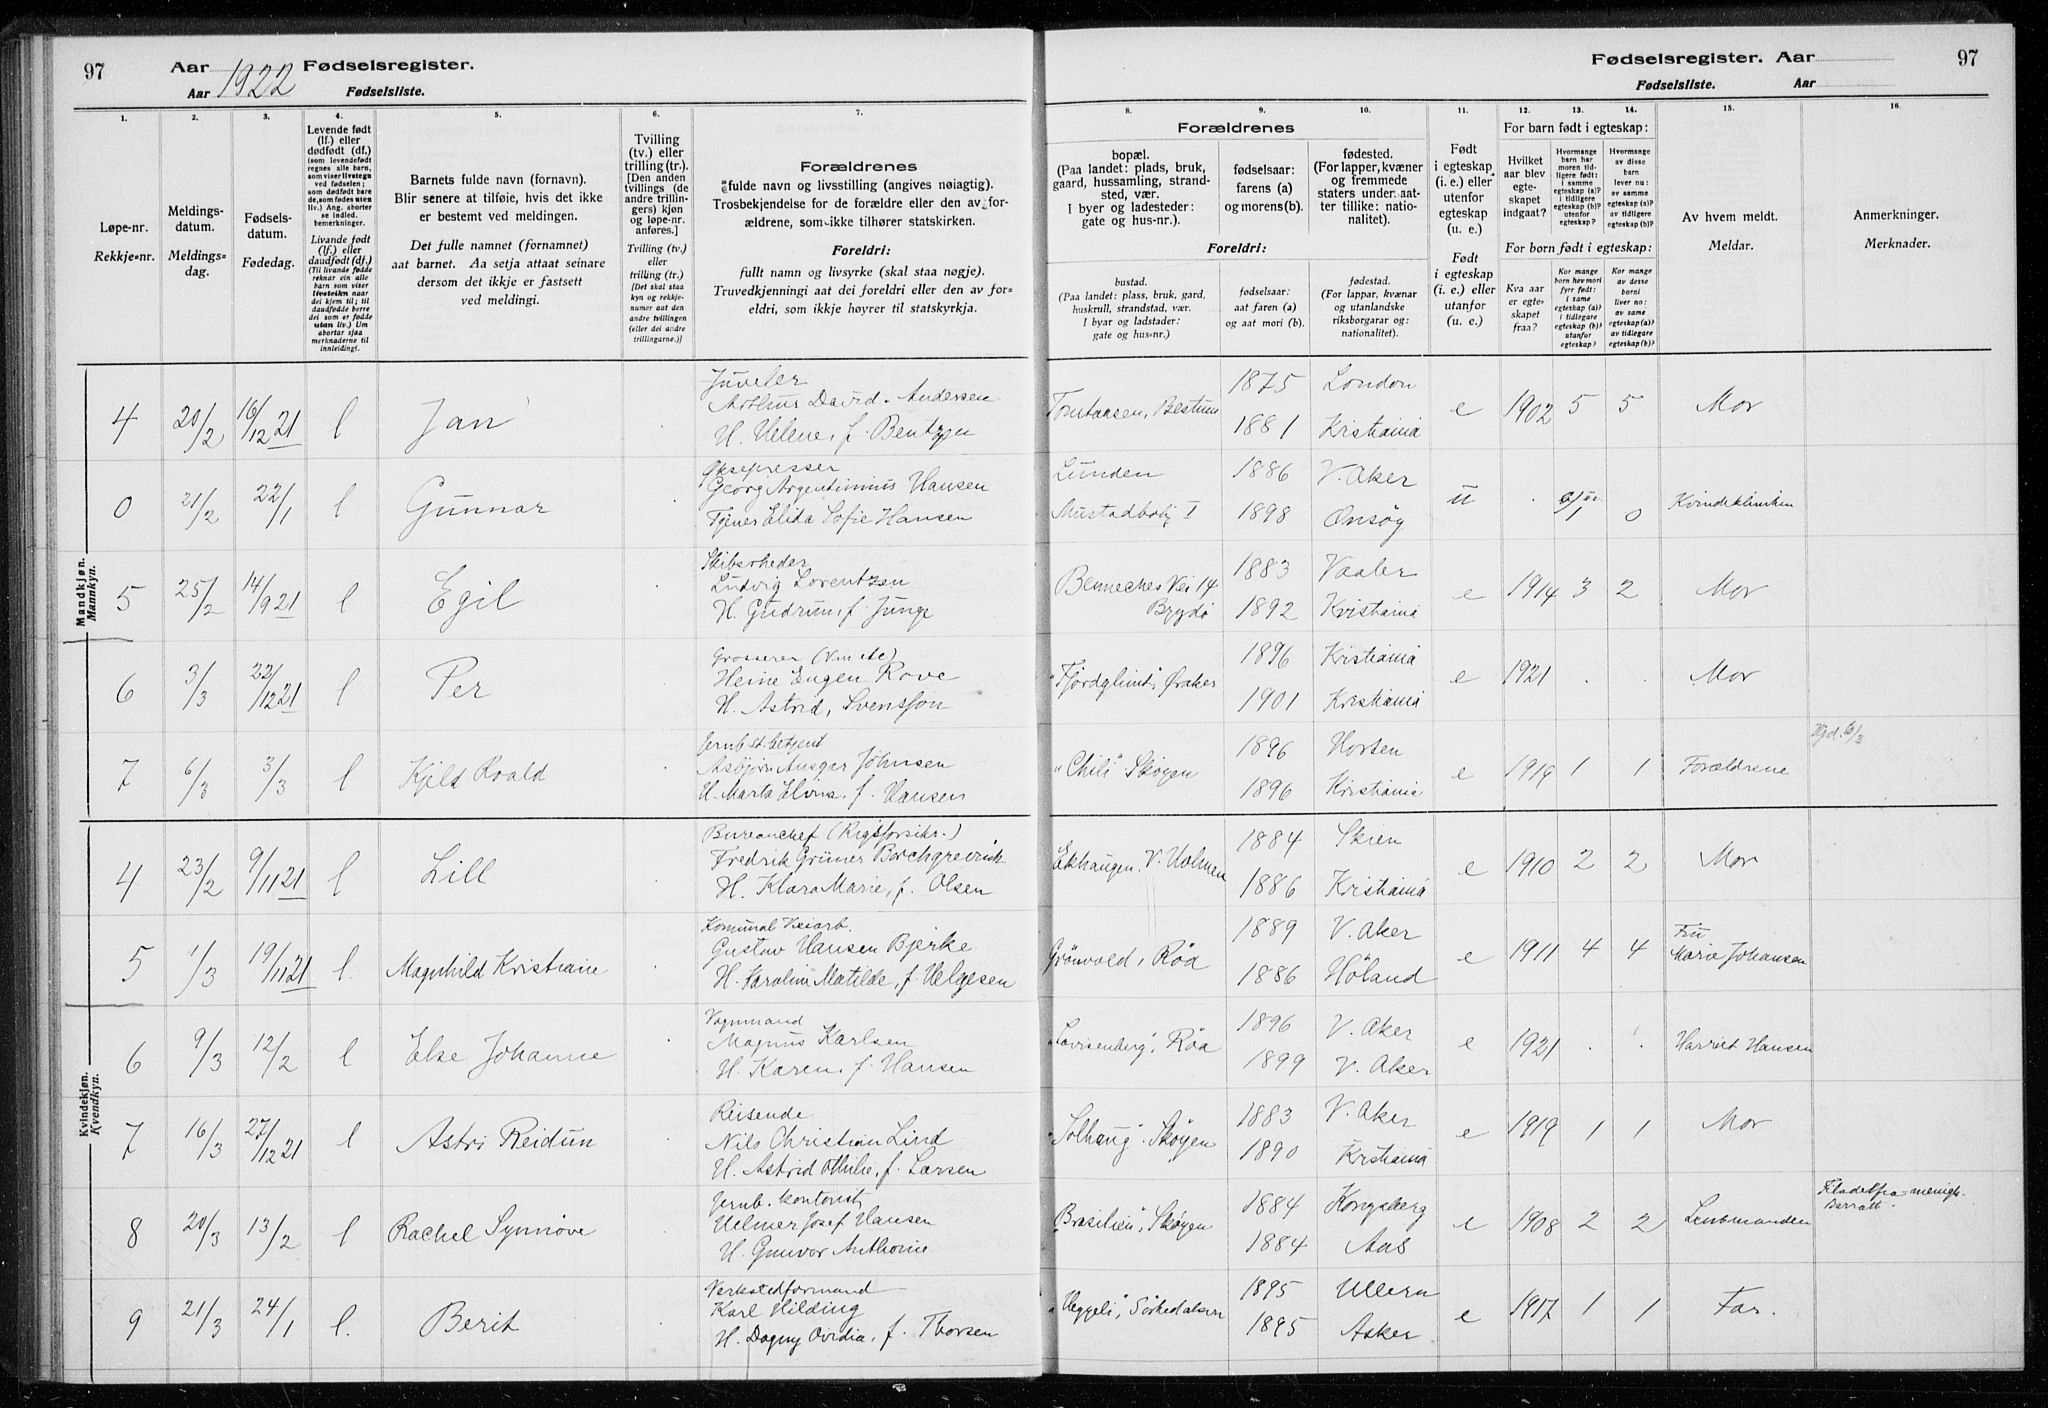 97 Aar 1922 Fødselsregister.
Aar Fødselsliste.
Fødselsregister. Aar 97
Fødselsliste. Aar
1. 2. 3. 4. 5. 6. 7. 8. 9. 10. 11. 12. 13. 14. 15. 16.
Løpe-nr.
Rekkje-nr.
Meldings-
datum.
Meldings-
dag.
Fødsels-
datum.
Fødedag.
Levende født
(lf.) eller
dødfødt (df.)
(som levendefødt
regnes alle barn,
som viser livstegn
ved fødselen;
som dødfødt bare
de, som fødes uten
liv.) Ang. aborter
se indled.
bemerkninger.
Livande født
(lf.) eller
daudfødt (df.)
(Til livande fødde
reknar ein alle
barn som viser
livsteikn naar
dei kjem til; til
daudfødde berre
dei som er fødde
utan liv.) Um
abortar sjaa
merknaderne til
innleidingi.
Barnets fulde navn (fornavn).
Blir senere at tilføie, hvis det ikke
er bestemt ved meldingen.
Det fulle namnet (fornamnet)
aat barnet. Aa setja attaat seinare
dersom det ikkje er fastsett
ved meldingi.
Tvilling
(tv.) eller
trilling (tr.)
[Den anden
tvillings (de
andre trillin-
gers) kjøn
og løpe-nr.
anføres.]
Tvilling (tv.)
eller
trilling (tr.)
[Det skal staa
kyn og rekkje-
numer aat den
andre tvillingen
(eller dei andre
trillingarne.)]
Forældrenes
fulde navn og livsstilling (angives nøiagtig).
Trosbekjendelse for de forældre eller den av for-
ældrene, som ikke tilhører statskirken.
Foreldri:
fullt namn og livsyrke (skal staa nøgje).
Truvedkjenningi aat dei foreldri eller den av for-
eldri, som ikkje høyrer til statskyrkja.
Forældrenes
bopæl.
(Paa landet: plads, bruk,
gaard, hussamling, strand-
sted, vær.
I byer og ladesteder:
gate og hus-nr.).
Foreldri:
bustad.
(Paa landet: plass, bruk, gard,
huskrull, strandstad, vær.
I byar og ladstader:
gate og hus-nr.)
fødselsaar:
farens (a)
og morens (b).
fødselsaar:
aat faren (a)
og aat mori (b).
fødested.
(For lapper, kvæner
og fremmede
staters under.aat-
ter tillike: natio-
nalitet).
fødestad.
(For lappar, kvænar
og utanlandske
riksborgarar og:
nationalitet).
Født
i egteskap
(i. e.) eller
utenfor
egteskap
(u. e.)
Født
i egteskap
(i. e.) eller
utanfor
(u. e.)
For barn født i egteskap:
Hvilket
aar blev
egte-
skapet
indgaat?
Hvormange
barn har
moren tid-
ligere født:
i samme
egteskap (a)?
i tidligere
egteskap (b)?
utenfor
egteskap?
Hvormange
av disse
barn
lever nu:
av samme
egteskap (a)?
av tidligere
egteskap (b)?
For born født i egteskap:
Kva aar
er egte-
skapet
fraa?
Kor mange
born hev mori
fyrr født:
i same
egteskap (a)?
i tidlegare
egteskap (b)?
utanfor
egteskap?
Kor mange
av desse
borni
liver no:
av same
egteskap (a)?
av tidlegare
egteskap (b)?
Av hvem meldt.
Meldar.
Anmerkninger.
Merknader.
Mandkjøn.
Mannkyn.
4 20/2 16/12 21 l Jan Juveler
Arthur David Andersen
H. Helene, f. Bentzen
Bestum 1875 London
1881 Kristiania e 1902 5 5 Mor
0 21/2 22/1 l Gunnar
Georg Argentinius Hansen
Tjener Elida Sofie Hansen
Lunden 1886 V. Aker
I 1898 Onsøy u . 0 Kvindeklinikken
5 25/2 14/9 21 l Egil Skibsrheder
Ludvig Lorentzen
H. Gudrun, f. Junge
Benneches Vei 14 1883 Vaaler
Bygdø 1892 Kristiania e 1914 3 2 Mor
6 3/3 22/12 21 l Per Grosserer
Heine Eugen Rove
H. Astrid, Svensson
"Fjordglimt", Øraker 1896 Kristiania
1901 Kristiania e 1921 . . Mor
7 6/3 3/3 l Kjeld Roald Jernb. st. betjent
Asbjørn Ansgar Johnsen
H. Marta Elvira, f. Hansen
"Chili" Skøyen 1896 Horten
1896 Kristiania e 1919 1 1 Forældrene 6/3
Kvindekjøn.
Kvendkyn.
4 23/2 9/11 21 l Lill Bureauchef (Rigsforsikr.)
Fredrik Grüner Borchgrevink
H. Klara Marie, f. Olsen
Ekhaugen, V. Holmen 1884 Skien
1886 Kristiania e 1910 2 2 Mor
5 1/3 19/11 21 l. Magnhild Kristiane Komunal Veiarb.
Gustav Hansen Bjerke
H. Karoline Matilde, f. Helgesen
Grönvold, Røa 1889 V. Aker
1886 Höland e 1911 4 4 Fru
Marie Johansen
6 9/3 12/2 l Else Johanne Vognmand
Magnus Karlsen
H. Karen, f. Hansen
"Lovisenberg", Røa 1896 V. Aker
1899 V. Aker e 1921 . . Harriet Hansen
7 16/3 27/12 21 l Astri Reidun Reisende
Nils Christian Lind
H. Astrid Othilie, f. Larsen
"Solhaug" Skøyen 1883 V. Aker
1890 Kristiania e 1919 1 1 Mor
8 20/3 13/2 l Rachel Synnøve Jernb. kontorist
Helmer Josef Hansen
H. Gunvor Anthonie
"Brasilien", Skøyen 1884 Kongsberg
1884 Aas e 1908 2 2 Lensmanden
9 21/3 24/1 l. Berit Verkstedformand
Karl Hilding
H. Dagny Ovidia, f. Thorsen
"Heggeli", Sørkedalsvn 1895 Ullern
1895 Asker e 1917 1 1 Far.